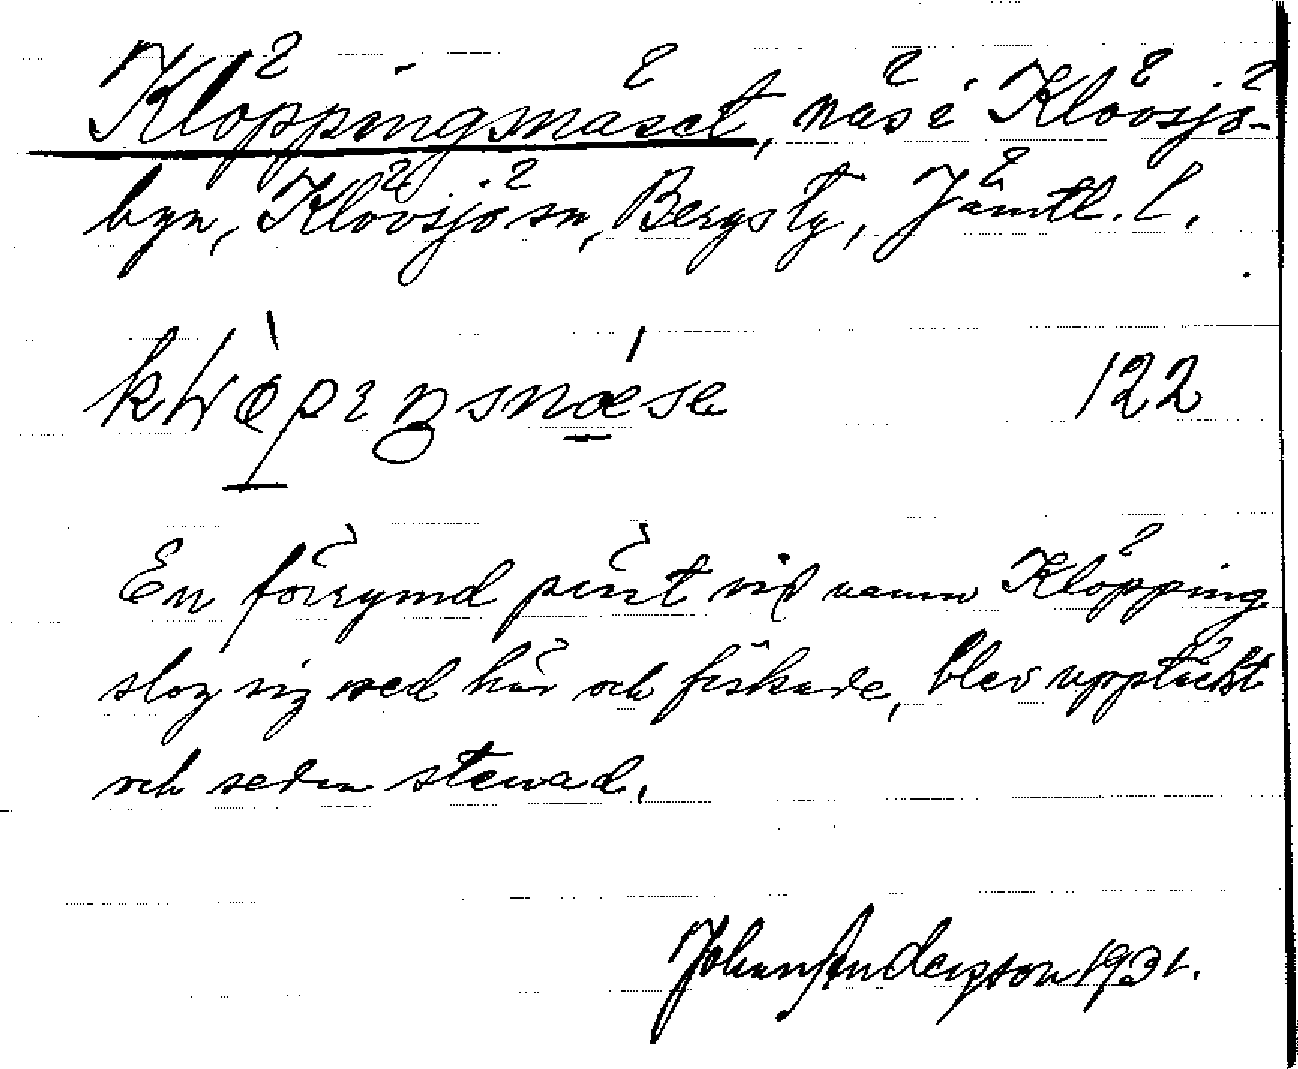 Klöppingsnäset, näs i Klövsjö-
byn, Klövsjö sn, Bergs tg, Jämtl. l.
122
En förrymd präst vid namn Klöpping
slog sig ned här och fiskade, blev upptäckt
och sedan stenad.
Johan Anderson 1931.